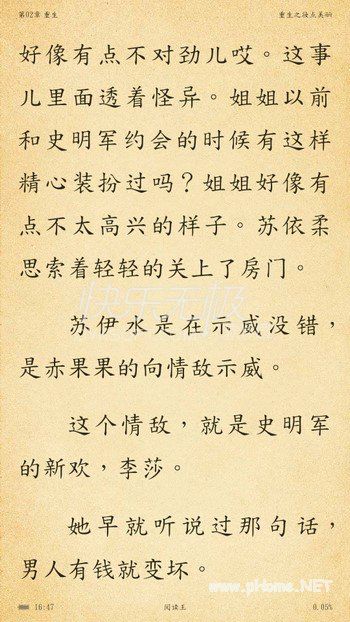 第02章 重生 重生之妆点美丽
好像有点不对劲儿哎。这事
儿里面透着怪异。姐姐以前
和史明军约会的时候有这样
精心装扮过吗？姐姐好像有
点不太高兴的样子。苏依柔
思索着轻轻的关上了房门。
快乐无极
苏伊水是在示威没错，
是赤果果的向情敌示威。
这个情敌，就是史明军
的新欢，李莎。
她早就听说过那句话，
男人有钱就变坏。
www.pHome.NET
16:47 阅读王 0.05%